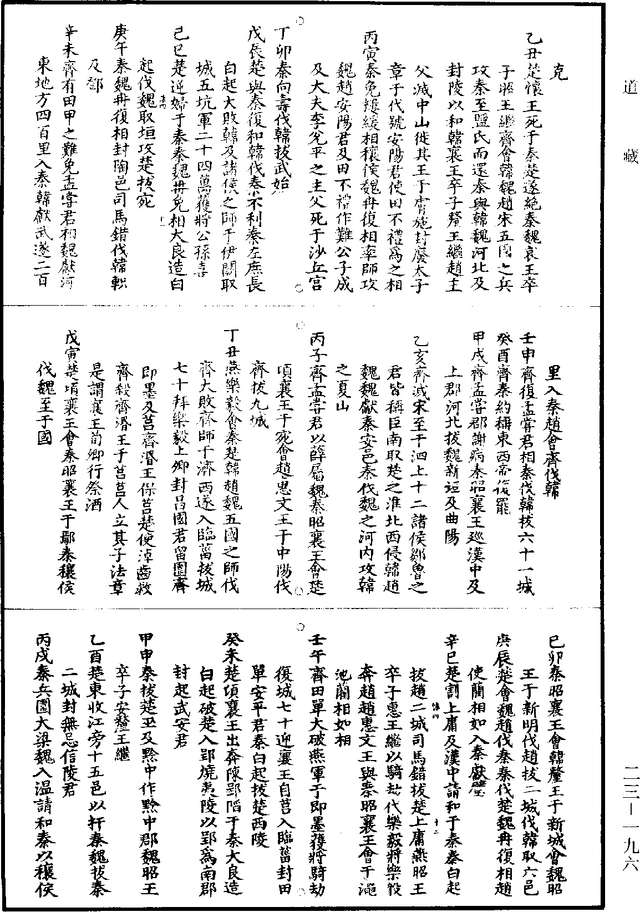 道藏
克
乙丑楚懷王死于秦楚遂絶秦魏哀王卒
子昭王繼齊會韓魏趙宋五國之兵
攻秦至鹽氏而還秦與韓魏河北及
封陵以和韓襄王卒子釐王繼趙主
父滅中山徙其王于膚施封廢太子
章于代號安陽君使田不禮為之相
丙寅秦免樓緩相穰侯魏冉復相率師攻
魏趙安陽君及田不禮作難公子成
及大夫李兊平之主父死于沙丘宫
丁卯秦向壽伐韓拔武始
戊辰楚與秦復和韓伐秦不利秦左庶長
白起大敗韓及諸侯之師于伊闕取
城五坑軍二十四萬獲將公孫喜
己巳楚逆婦于秦秦魏冉免相大良造白
起伐魏取垣攻楚拔宛
庚午秦魏冉復相封陶邑司馬錯伐韓軹
及鄧
辛未齊有田甲之難免孟嘗君相魏獻河
東地方四百里入秦韓獻武遂二百
里入秦趙會齊伐韓
壬申齊復孟嘗君相秦伐韓拔六十一城
癸酉齊秦約稱東西帝復罷
甲戌齊孟嘗君謝病秦昭襄王廵漢中及
上郡河北拔魏新垣及曲陽
乙亥齊滅宋至于泗上十二諸侯鄒魯之
君皆稱臣南取楚之淮北西侵韓趙
魏魏獻秦安邑秦伐魏之河内攻韓
之夏山
丙子齊孟嘗君以薛屬魏秦昭襄王會楚
頃襄王于宛會趙惠文王于中陽伐
齊拔九城
丁丑燕樂毅會秦楚韓趙魏五國之師伐
齊大敗齊師于濟西遂入臨菑拔城
七十拜樂毅上卿封昌國君留圖齊
即墨及莒齊湣王保莒楚使淖齒救
齊殺齊湣王于莒莒人立其子法章
是謂襄王荀卿行祭酒
戊寅楚頃襄王會秦昭襄王于鄢秦穰侯
伐魏至于國
己卯秦昭襄王會韓釐王于新城會魏昭
王于新明代趙拔二城伐韓取六邑
庚辰楚會魏趙伐秦秦伐楚魏冉復相趙
使藺相如入秦獻璧
辛巳楚割上庸及漢中請和于秦秦白起
拔趙二城司馬錯拔楚上庸燕昭王
卒子惠王繼以騎劫代樂毅將樂毅
奔趙趙惠文王與秦昭襄王會于澠
池藺相如相
壬午齊田單大破燕軍于即墨獲將騎劫
復城七十迎襄王自莒入臨菑封田
單安平君秦白起拔楚西陵
癸未楚頃襄王出奔陳郢陷于秦大良造
白起破楚入郢燒夷陵以郢為南郡
封起武安君
甲申秦拔楚巫及黔中作黔中郡魏昭王
卒子安釐王繼
乙酉楚東收江旁十五邑以扞秦魏拔秦
二城封無忌信陵君
丙戌秦兵圍大梁魏入溫請和秦以穰侯
二三—一九六